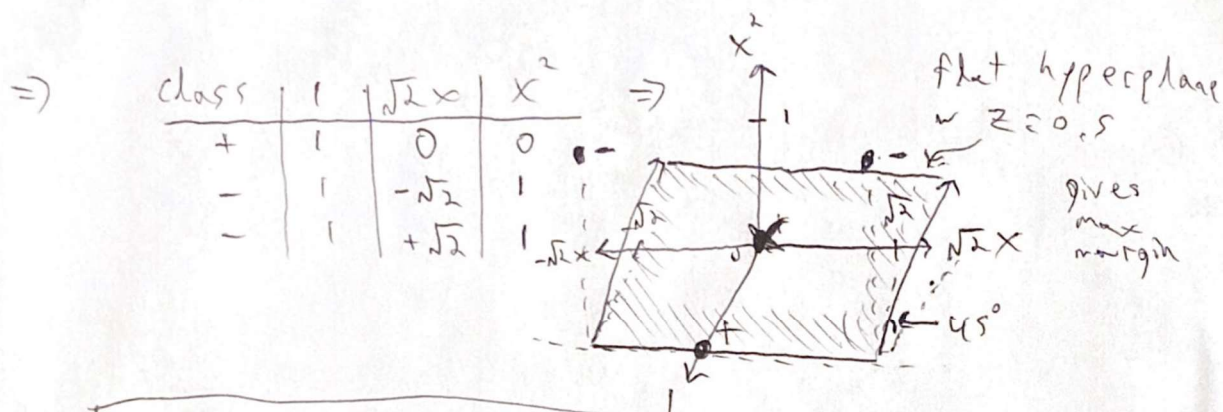 => class | 1 | √2x | x² =>
+ | 1 | 0 | 0
- | 1 | -√2 | 1
- | 1 | +√2 | 1
x²
1
-
-
flat hyperplane
w z=0.5
gives
max
margin
-√2
√2
-√2x
√2x
+
45°
1